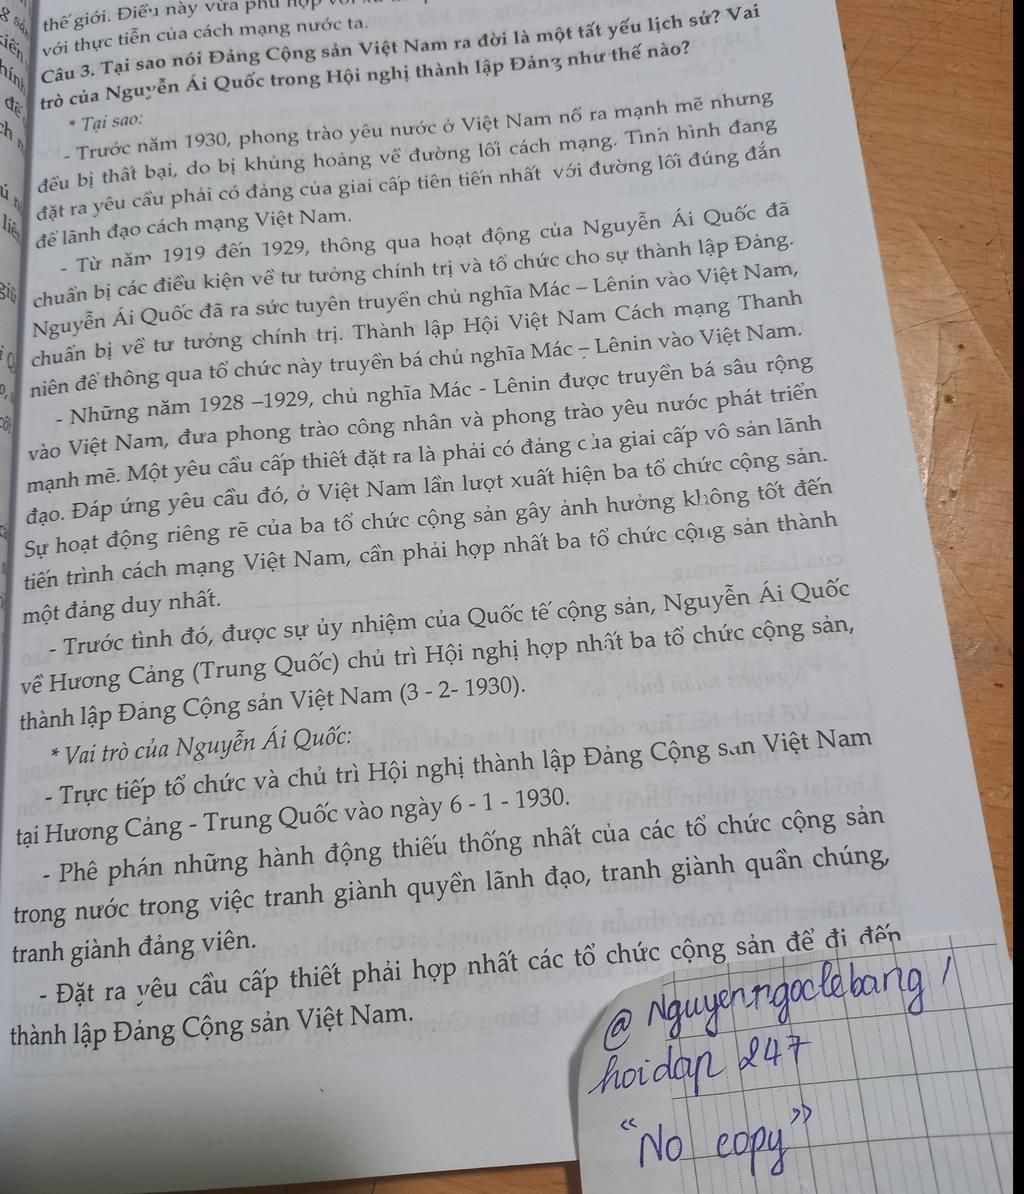 thế giới. Điều này vừa phù hợp với
với thực tiễn của cách mạng nước ta.
Câu 3. Tại sao nói Đảng Cộng sản Việt Nam ra đời là một tất yếu lịch sử? Vai
trò của Nguyễn Ái Quốc trong Hội nghị thành lập Đảng như thế nào?
* Tại sao:
- Trước năm 1930, phong trào yêu nước ở Việt Nam nổ ra mạnh mẽ nhưng
đều bị thất bại, do bị khủng hoảng về đường lối cách mạng. Tình hình đang
đặt ra yêu cầu phải có đảng của giai cấp tiên tiến nhất với đường lối đúng đắn
để lãnh đạo cách mạng Việt Nam.
- Từ năm 1919 đến 1929, thông qua hoạt động của Nguyễn Ái Quốc đã
chuẩn bị các điều kiện về tư tưởng chính trị và tổ chức cho sự thành lập Đảng.
Nguyễn Ái Quốc đã ra sức tuyên truyền chủ nghĩa Mác – Lênin vào Việt Nam,
chuẩn bị về tư tưởng chính trị. Thành lập Hội Việt Nam Cách mạng Thanh
niên để thông qua tổ chức này truyền bá chủ nghĩa Mác – Lênin vào Việt Nam.
- Những năm 1928 –1929, chủ nghĩa Mác - Lênin được truyền bá sâu rộng
vào Việt Nam, đưa phong trào công nhân và phong trào yêu nước phát triển
mạnh mẽ. Một yêu cầu cấp thiết đặt ra là phải có đảng của giai cấp vô sản lãnh
đạo. Đáp ứng yêu cầu đó, ở Việt Nam lần lượt xuất hiện ba tổ chức cộng sản.
Sự hoạt động riêng rẽ của ba tổ chức cộng sản gây ảnh hưởng không tốt đến
tiến trình cách mạng Việt Nam, cần phải hợp nhất ba tổ chức cộng sản thành
một đảng duy nhất.
- Trước tình đó, được sự ủy nhiệm của Quốc tế cộng sản, Nguyễn Ái Quốc
về Hương Cảng (Trung Quốc) chủ trì Hội nghị hợp nhất ba tổ chức cộng sản,
thành lập Đảng Cộng sản Việt Nam (3 - 2- 1930).
* Vai trò của Nguyễn Ái Quốc:
- Trực tiếp tổ chức và chủ trì Hội nghị thành lập Đảng Cộng sản Việt Nam
tại Hương Cảng - Trung Quốc vào ngày 6 - 1 - 1930.
- Phê phán những hành động thiếu thống nhất của các tổ chức cộng sản
trong nước trong việc tranh giành quyền lãnh đạo, tranh giành quần chúng,
tranh giành đảng viên.
- Đặt ra yêu cầu cấp thiết phải hợp nhất các tổ chức cộng sản để đi đến
thành lập Đảng Cộng sản Việt Nam.
@ Nguyenngoclebang /
hoidap 247
"No copy"